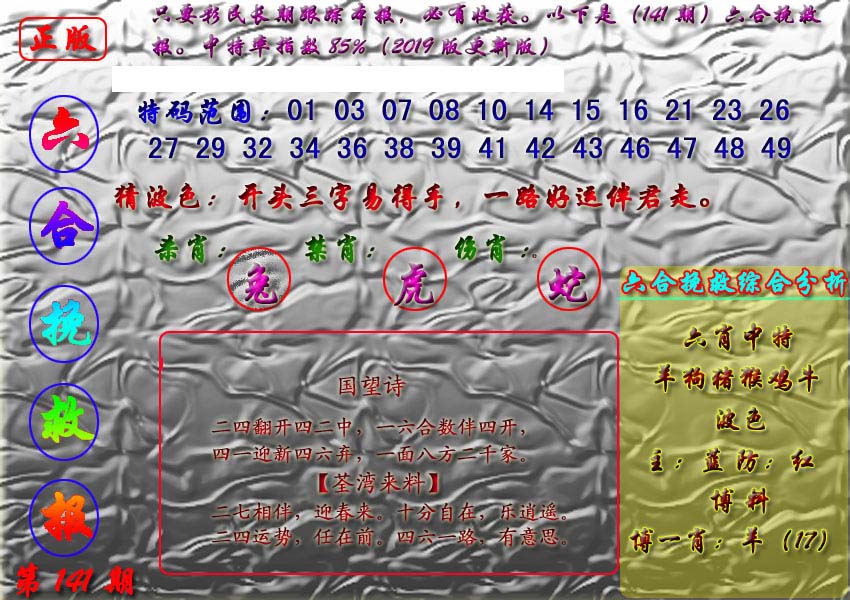 正版
只要彩民长期跟踪本报，必有收获。以下是（141期）六合挽救
报。中特率指数85%（2019版更新版）
六
合
挽
救
报
第141期
特码范围：01 03 07 08 10 14 15 16 21 23 26
27 29 32 34 36 38 39 41 42 43 46 47 48 49
猜波色：开头三字易得手，一路好运伴君走。
杀肖：兔 禁肖：虎 伤肖：蛇
国望诗
二四翻开四二中，一六合数伴四开，
四一迎新四六弃，一面八方二千家。
【荃湾来料】
二七相伴，迎春来。十分自在，乐逍遥。
二四运势，任在前。四六一路，有意思。
六合挽救综合分析
六肖中特
羊狗猪猴鸡牛
波色
主：蓝防：红
博料
博一肖：羊（17）